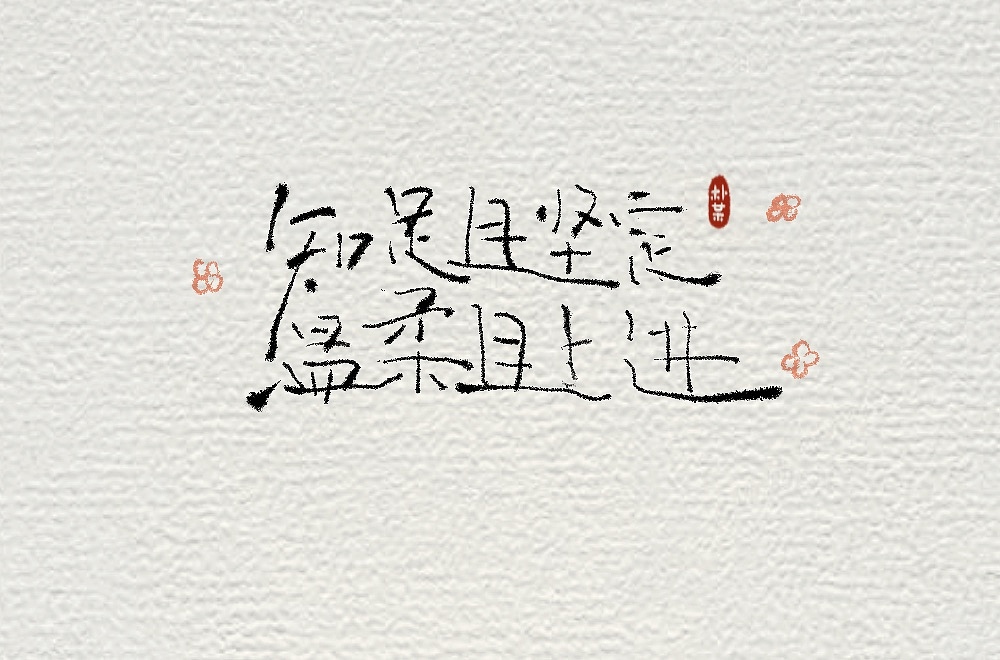 知足且坚定
温柔且上进
朴某